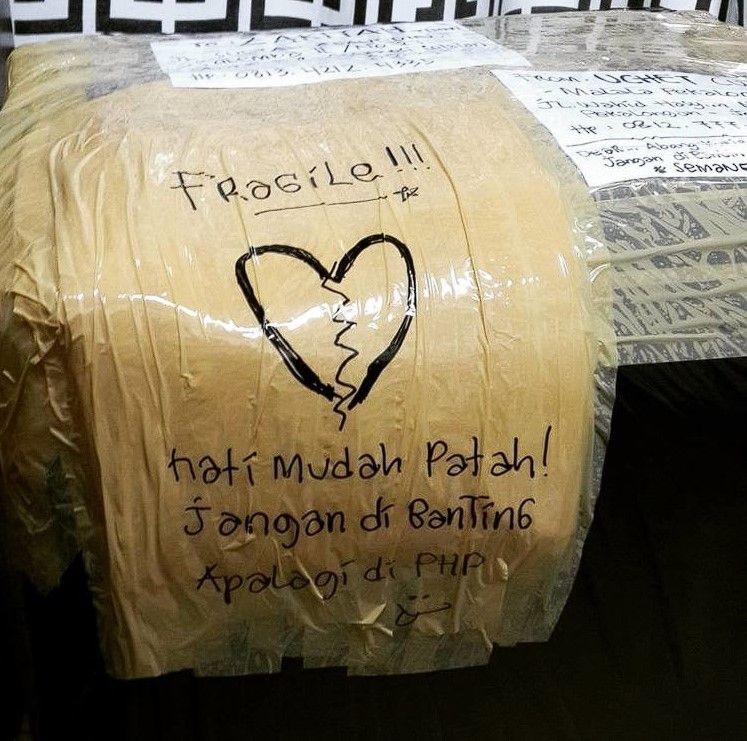 HP: 0813.
From: UGHET
- Malala Pekalon
JL. Wahid Hasyim
Pekalongan -
HP: 0812. 777
Jangan di
* SEMANG
FRAGiLe!!!
hati Mudah Patah!
Jangan di BanTinG
Apalagi di PHP